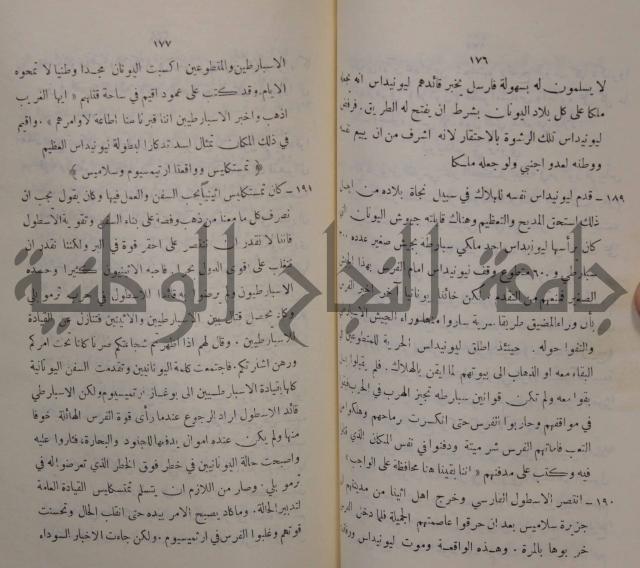 ١٧٦
لا يسلمون له بسهولة فارسل يخبر قائدهم ليونيداس انه يجعله
ملكا على كل بلاد اليونان بشرط ان يفتح له الطريق. فرفض
ليونيداس تلك الرشوة بالاحتقار لانه اشرف من ان يبيع نفسه
ووطنه لعدو اجنبي ولو جعله ملكا
١٨٩ – قدم ليونيداس نفسه للهلاك في سبيل نجاة بلاده من اجل
ذلك استحق المديح والتعظيم وهناك قابلته جيوش اليونان التي
كان يرأسها ليونيداس احد ملكي سبارطه بجيش صغير عدده ٣٠٠
سبارطي و٦٠٠ متطوع وقف ليونيداس امام الفرس بهذا
الصغير فمنعهم من التقدم ولكن خائنا يونانيا اخبر الفرس
بأن وراء المضيق طريقا سرية ساروا منها وراء الجيش الاسبارطي
والتفوا حوله. حينئذ اطلق ليونيداس الحرية للمتطوعين في
البقاء معه او الذهاب الى بيوتهم لما ايقن بالهلاك. فلم يقبلوا
بقوا معه ولم تكن قوانين سبارطه تجيز الهرب في الحرب
في مواقفهم وحاربوا الفرس حتى انكسرت رماحهم وهلكوا من
التعب فاماتهم الفرس شر ميتة ودفنوا في نفس المكان الذي
فيه وكتب على مدفنهم « اننا بقينا هنا محافظة على الواجب »
١٩٠ – انتصر الاسطول الفارسي وخرج اهل اثينا من مدينتهم
جزيرة سلاميس بعد ان حرقوا عاصمتهم الجميلة فلما دخل الفرس
خربوها بالمرة. وهذه الواقعة وموت ليونيداس
١٧٧
الاسبارطيين والمتطوعين اكسبت اليونان مجدا وطنيا لا تمحوه
الايام. وقد كتب على عمود اقيم في ساحة قتلهم « ايها الغريب
اذهب واخبر الاسبارطيين اننا قبرنا هنا اطاعة لاوامرهم ». واقيم
في ذلك المكان تمثال اسد تذكارا لبطولة ليونيداس العظيم
﴿ تمستكليس وواقعتا ارتيمسيوم وسلاميس ﴾
١٩١ – كان تمستكليس اثينيا يحب السفن والعمل فيها وكان يقول يجب ان
نصرف كل ما معنا من ذهب وفضة على بناء السفن وتقوية الاسطول
فاننا لا نقدر ان ننتصر على احقر قوة في البر ولكننا نقدر ان
نتغلب على اقوى الدول بحرا. فاحبه الاثينيون كثيرا وحسده
الاسبارطيون ولم يرضوا به قائدا للاسطول في حرب ترموبلي
وكاد يحصل قتال بين الاسبارطيين والاثينيين فتنازل عن القيادة
للاسبارطيين. وقال لهم اذا اظهرتم شجاعتكم صرنا كلنا تحت امركم
ورهن اشارتكم. فاجتمعت كلمة اليونانيين وتقدمت السفن اليونانية
كلها بقيادة الاسبارطيين الى بوغاز ارتميسيوم ولكن الاسبارطي
قائد الاسطول اراد الرجوع عندما رأى قوة الفرس الهائلة. خوفا
منها ولم يكن عنده اموال يدفعها للجنود والبحارة، فثاروا عليه
واصبحت حالة اليونانيين في خطر فوق الخطر الذي تعرضوا له في
ترموبلي. وصار من اللازم ان يتسلم تمستكليس القيادة العامة
لتدبير الحالة. وما كاد يصبح الامر بيده حتى انقلب الحال وتحسنت
قوتهم وغلبوا الفرس في ارتميسيوم. ولكن جاءت الاخبار السوداء
جامعة النجاح الوطنية